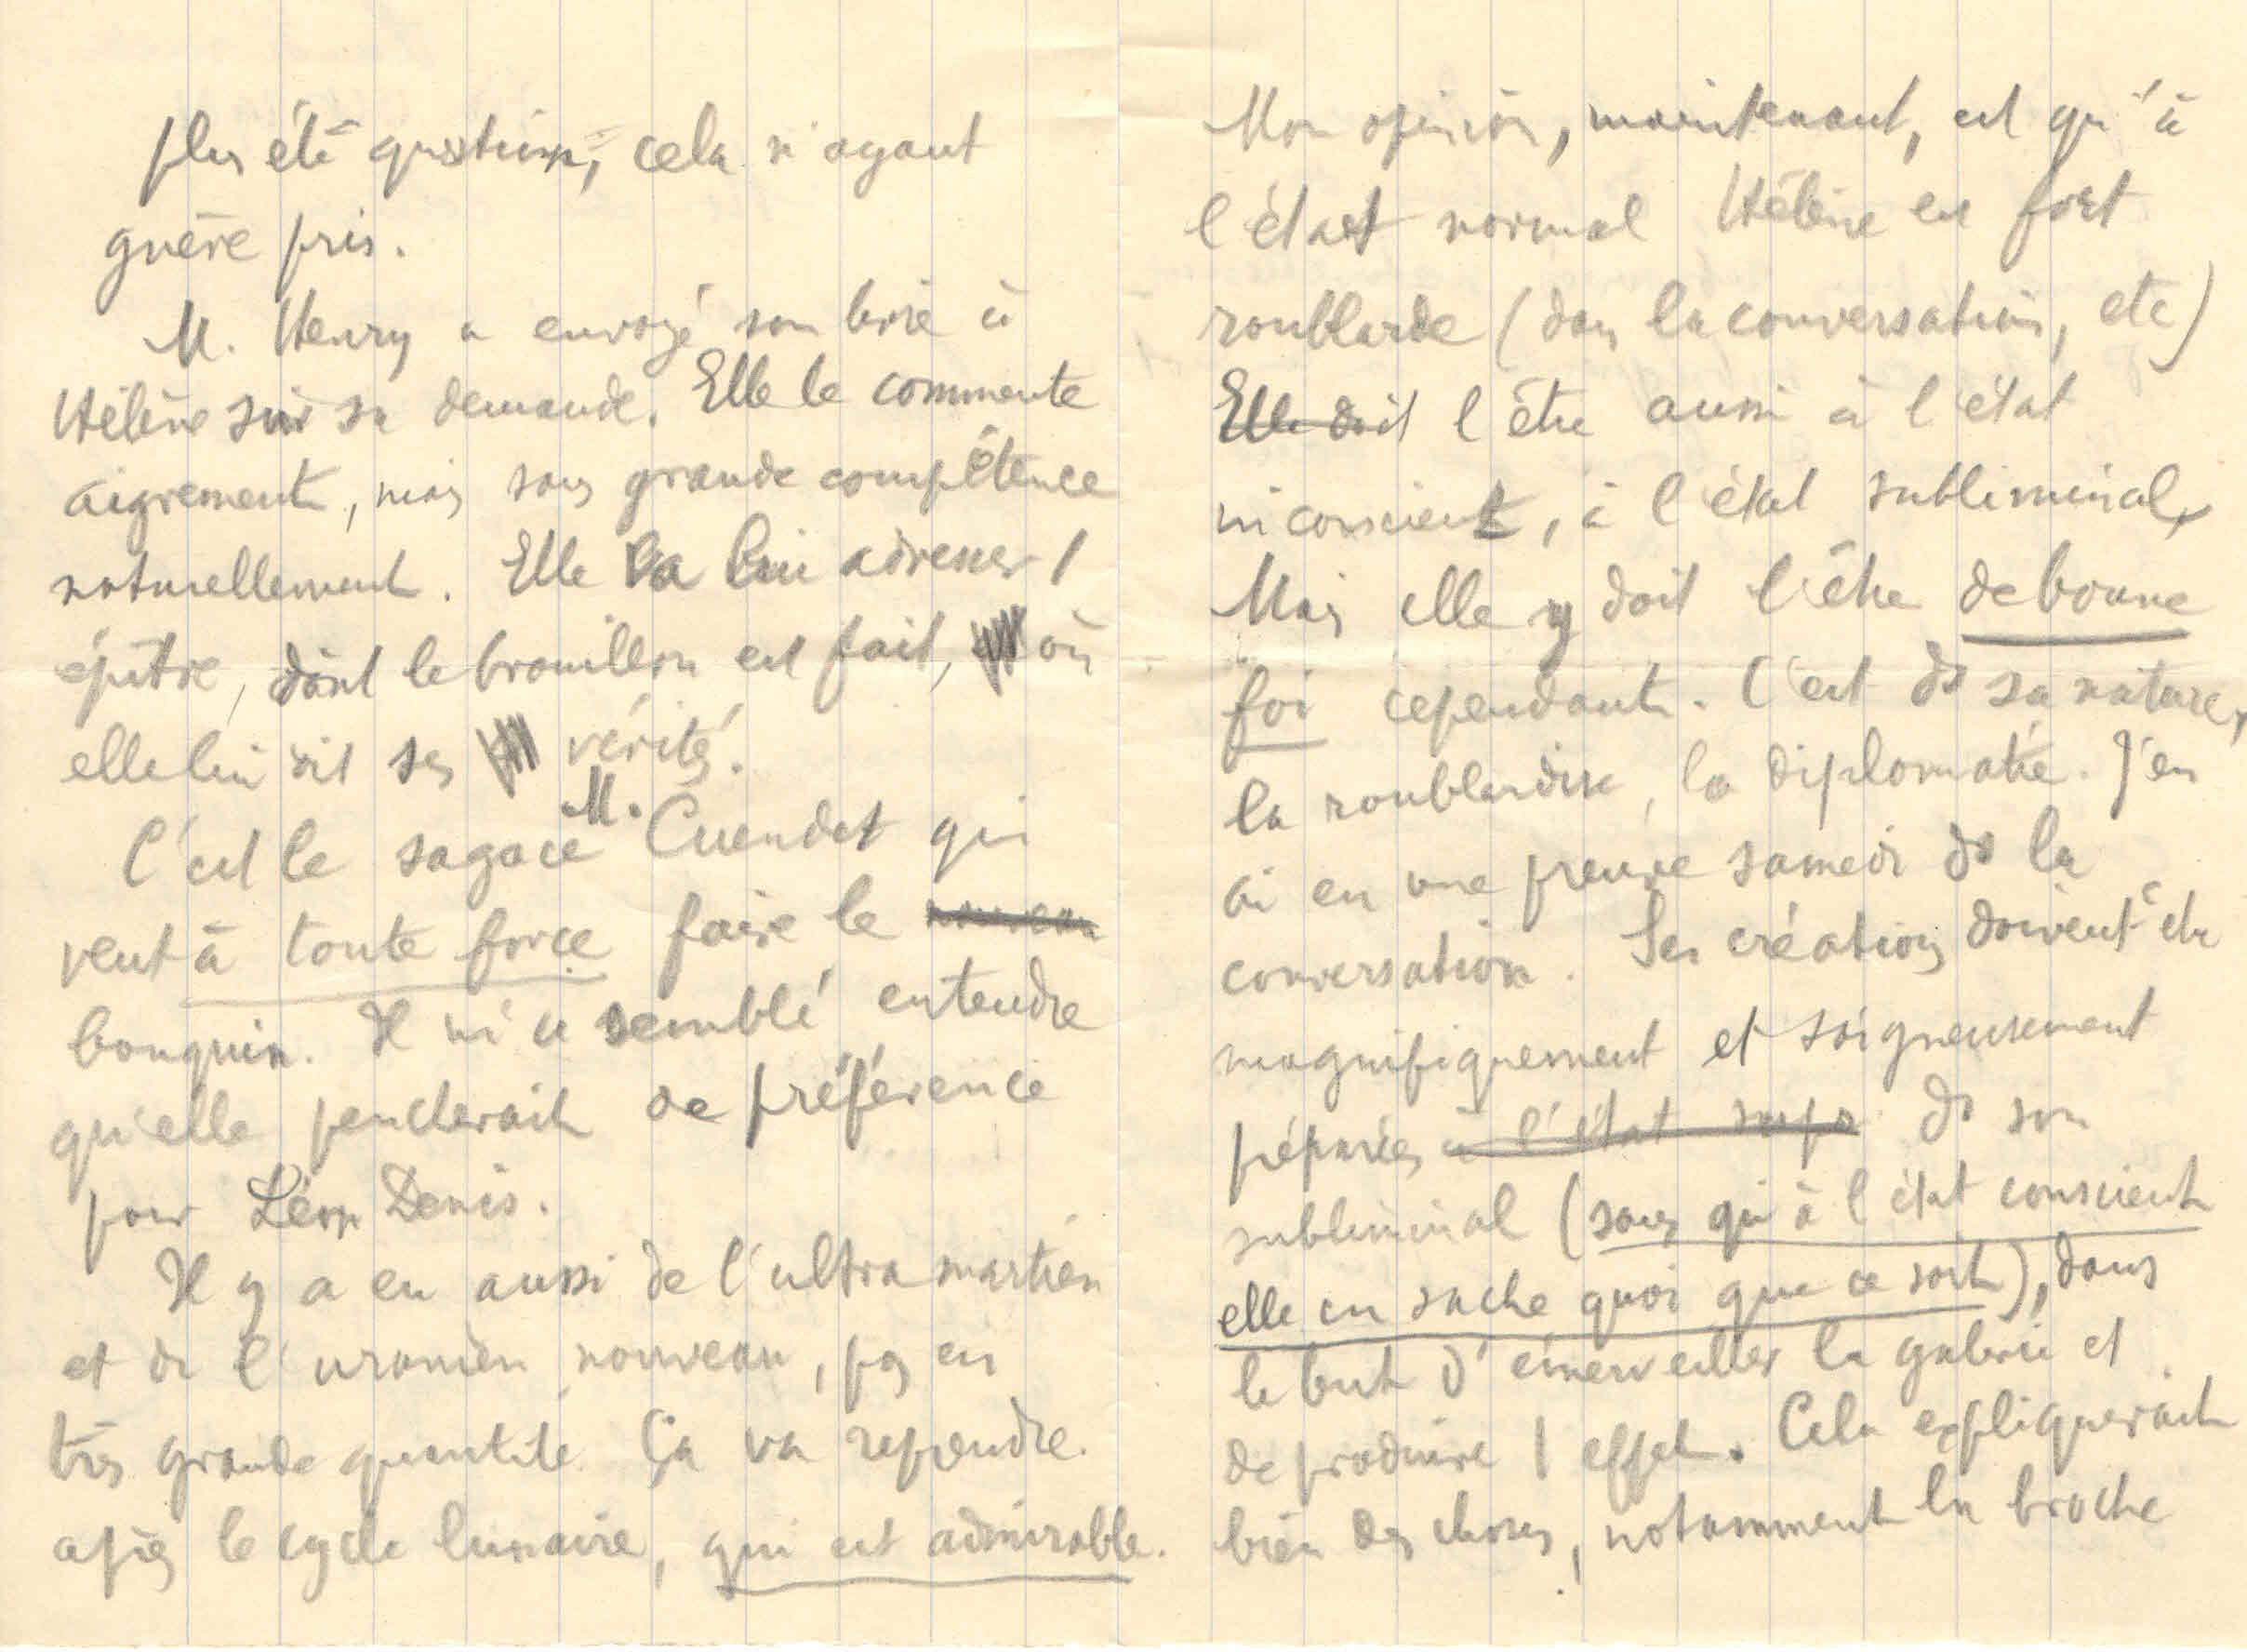 plus été question, cela n'ayant
guère pris.
M. Henry a envoyé son livre à
Hélène sur sa demande. Elle le commente
aigrement, mais sans grande compétence
naturellement. Elle va lui adresser 1
épitre, dont le brouillon est fait, où
elle lui dit ses vérités.
C'est le sagace M. Cuendet qui
veut à toute force faire le nouveau
bouquin. Il m'a semblé entendre
qu'elle pencherait de préférence
pour Léon Denis.
Il y a eu aussi de l'ultramartien
et de l'uranien nouveau, pas en
très grande quantité. Ça va reprendre
après le cycle lunaire, qui est admirable.
Mon opinion, maintenant, est qu'à
l'état normal Hélène est fort
roublarde (dans la conversation, etc)
Elle doit l'être aussi à l'état
inconscient, à l'état subliminal,
Mais elle y doit l'être de bonne
foi cependant. C'est ds sa nature,
la roublardise, la diplomatie. J'en
ai eu une preuve samedi ds la
conversation. Ses créations doivent être
magnifiquement et soigneusement
préparées à l'état ds son
subliminal (sans qu'à l'état conscient
elle en sache quoi que ce soit), dans
le but d'émerveiller la galerie et
de produire 1 effet. Cela expliquerait
bien des choses, notamment la broche